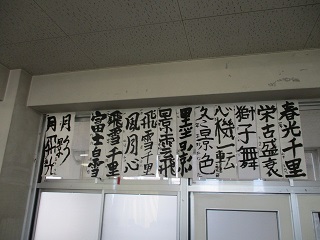 春光千里
栄古盛衰
獅子舞
心機一転
冬景色
里空
景雲飛
飛雪千里
風月心
飛雪千里
富士白雪
月影
月